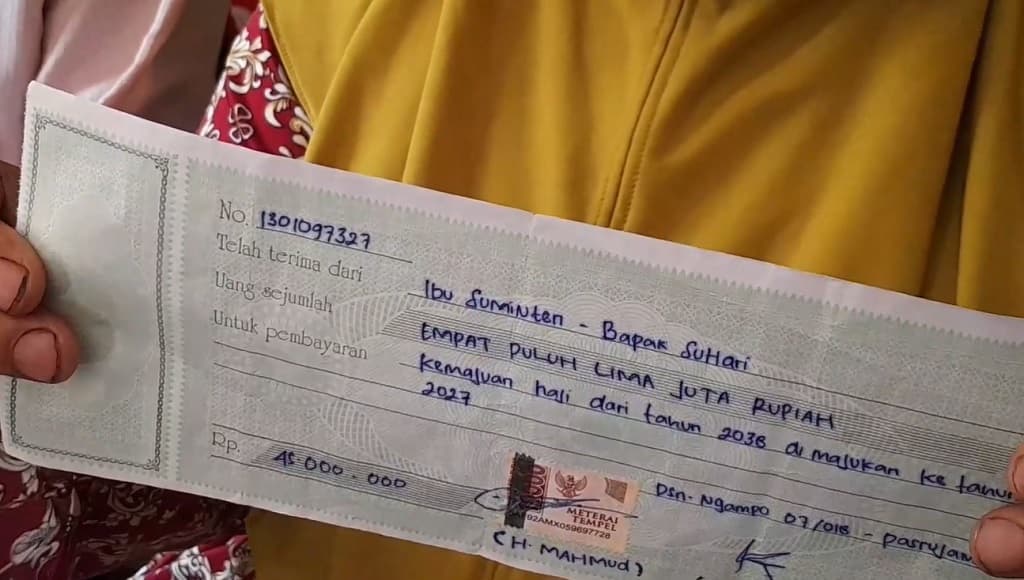 No. 1301097327
Telah terima dari Ibu Suminten - Bapak SuHari
Uang sejumlah EMPAT PULUH LIMA JUTA RUPIAH
Untuk pembayaran Kemajuan hali dari tahun 2036 di majukan ke tahun
2027
Rp. 45.000.000
000
METERAI
TEMPEL
92AMX059697728
Dsn. Ngampo 07/018 - pasrujam
(H. MAHMUd)